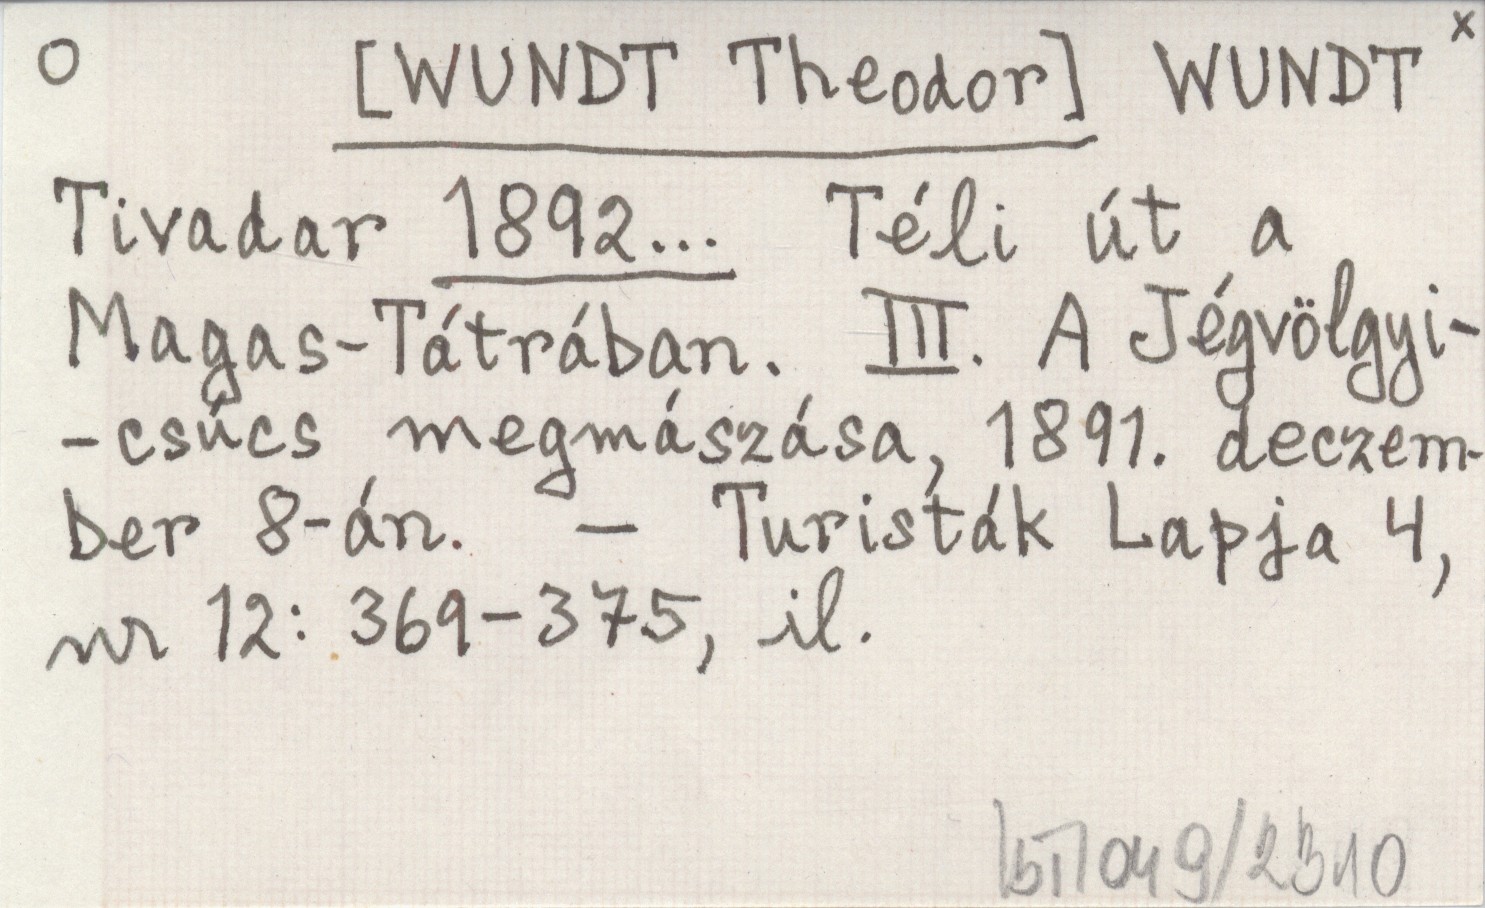 O [WUNDT Theodor] WUNDT x
Tivadar 1892... Téli út a
Magas-Tátrában. III. A Jégvölgyi-
-csúcs megmászása, 1891. deczem-
ber 8-án. — Turisták Lapja 4,
nr 12: 369-375, il.
049/2310